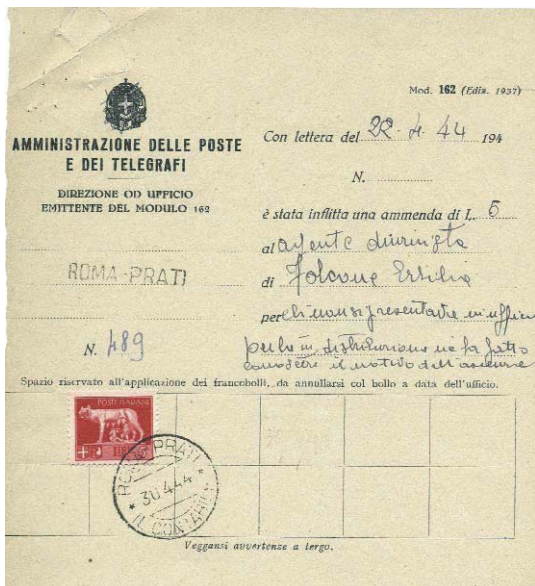 Mod. 162 (Ediz. 1937)
AMMINISTRAZIONE DELLE POSTE
E DEI TELEGRAFI
DIREZIONE OD UFFICIO
EMITTENTE DEL MODULO 162
ROMA-PRATI
N. 489
Con lettera del 22-4-44 194
N.
è stata inflitta una ammenda di L. 5
al agente
di Folcone Ersilia
per
in distribuzione fatto
conoscere il motivo dell'assenza
Spazio riservato all'applicazione dei francobolli, da annullarsi col bollo a data dell'ufficio.
POSTE ITALIANE
ROMA PRATI
30.4.44
IL CONTABILE
Veggansi avvertenze a tergo.